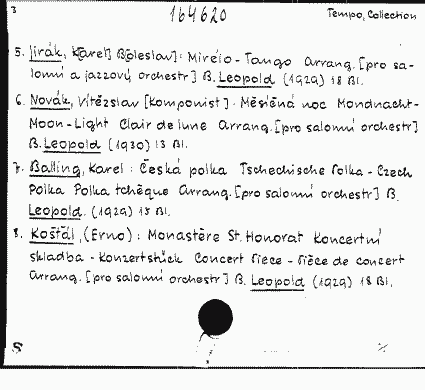 3 164620 Tempo, Collection
5. Jirák, Karel Boleslav]: Mireio - Tango Arrang. [pro sa-
lonní a jazzový orchestr] B. Leopold (1929) 18 Bl.
6. Novák, Vítězslav [Komponist]: Měsíčná noc Mondnacht-
Moon-Light Clair de lune Arrang. [pro salonní orchestr]
B. Leopold (1930) 13 Bl.
7. Balling, Karel: Česká polka Tschechische Polka - Czech
Polka Polka tchèque Arrang. [pro salonní orchestr] B.
Leopold. (1929) 15 Bl.
8. Košťál, (Erno): Monastère St. Honorat Koncertní
skladba - Konzertstück Concert Piece - Pièce de concert
Arrang. [pro salonní orchestr] B. Leopold (1929) 18 Bl.